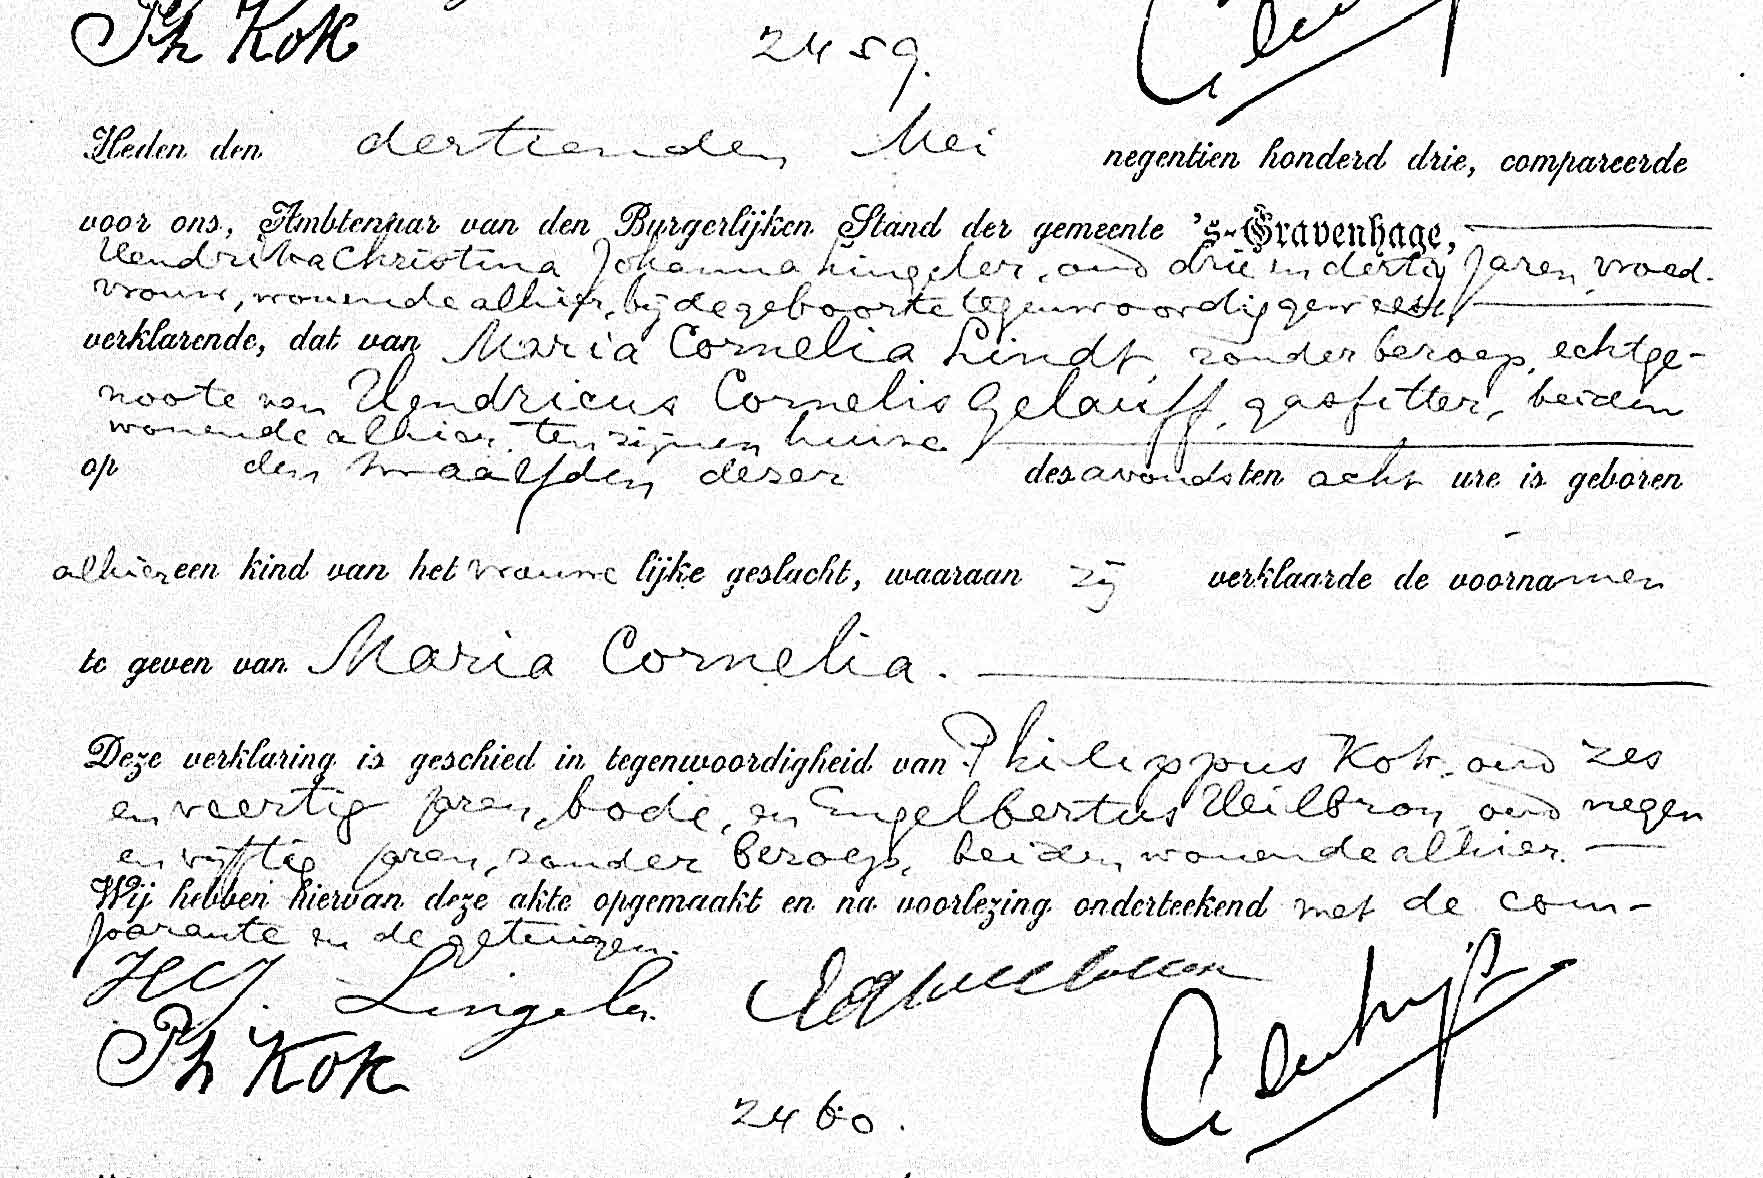 Ph Kok
2459.
Heden den dertienden Mei negentien honderd drie, compareerde
voor ons, Ambtenaar van den Burgerlijken Stand der gemeente 's-Gravenhage,
Hendrika Christina Johanna Lingeler, oud drie en dertig jaren, vroed-
vrouw, wonende alhier, bij de geboorte tegenwoordig geweest,
verklarende, dat van Maria Cornelia Lindt, zonder beroep, echtge-
noote van Hendricus Cornelis Gelauff, gasfitter, beiden
wonende alhier, ten zijnen huize
op den twaalfden dezer des avonds ten acht ure is geboren
alhier een kind van het vrouwelijke geslacht, waaraan zij verklaarde de voornamen
te geven van Maria Cornelia.
Deze verklaring is geschied in tegenwoordigheid van Philippus Kok, oud zes
en veertig jaren, bode, en Engelbertus Heilbron, oud negen
en vijftig jaren, zonder beroep, beiden wonende alhier.
Wij hebben hiervan deze akte opgemaakt en na voorlezing onderteekend met de com-
parante en de getuigen.
HCJ. Lingeler.
Ph Kok
2460.